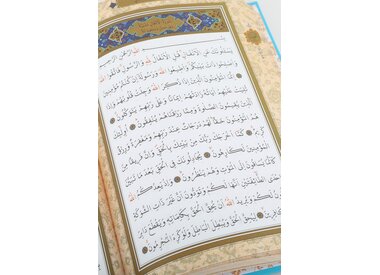 بِسْمِ اللّٰهِ الرَّحْمٰنِ الرَّحِيمِ
يَسْـَٔلُونَكَ عَنِ الْاَنْفَالِ قُلِ الْاَنْفَالُ لِلّٰهِ وَالرَّسُولِ فَاتَّقُوا اللّٰهَ
وَاَصْلِحُوا ذَاتَ بَيْنِكُمْ وَاَطِيعُوا اللّٰهَ وَرَسُولَهُٓ اِنْ كُنْتُمْ مُؤْمِنِينَ
اِنَّمَا الْمُؤْمِنُونَ الَّذِينَ اِذَا ذُكِرَ اللّٰهُ وَجِلَتْ قُلُوبُهُمْ وَاِذَا
تُلِيَتْ عَلَيْهِمْ اٰيَاتُهُ زَادَتْهُمْ اِيمَانًا وَعَلٰى رَبِّهِمْ يَتَوَكَّلُونَ
اَلَّذِينَ يُقِيمُونَ الصَّلٰوةَ وَمِمَّا رَزَقْنَاهُمْ يُنْفِقُونَ اُولٰٓئِكَ
هُمُ الْمُؤْمِنُونَ حَقًّا لَهُمْ دَرَجَاتٌ عِنْدَ رَبِّهِمْ وَمَغْفِرَةٌ وَرِزْقٌ
كَرِيمٌ كَمَٓا اَخْرَجَكَ رَبُّكَ مِنْ بَيْتِكَ بِالْحَقِّ وَاِنَّ فَرِيقًا مِنَ
الْمُؤْمِنِينَ لَكَارِهُونَ يُجَادِلُونَكَ فِي الْحَقِّ بَعْدَ مَا تَبَيَّنَ
كَاَنَّمَا يُسَاقُونَ اِلَى الْمَوْتِ وَهُمْ يَنْظُرُونَ وَاِذْ يَعِدُكُمُ اللّٰهُ
اِحْدَى الطَّٓائِفَتَيْنِ اَنَّهَا لَكُمْ وَتَوَدُّونَ اَنَّ غَيْرَ ذَاتِ الشَّوْكَةِ
تَكُونُ لَكُمْ وَيُرِيدُ اللّٰهُ اَنْ يُحِقَّ الْحَقَّ بِكَلِمَاتِهِ وَيَقْطَعَ دَابِرَ
الْكَافِرِينَ لِيُحِقَّ الْحَقَّ وَيُبْطِلَ الْبَاطِلَ وَلَوْ كَرِهَ الْمُجْرِمُونَ